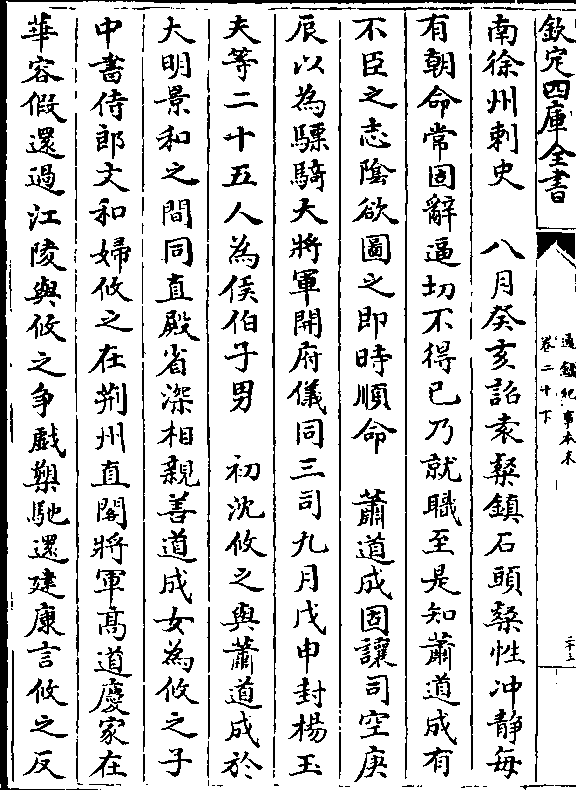 欽定四庫全書
通鑑紀事本末
卷二十下
二十五
南徐州刺史　八月癸亥詔袁粲鎮石頭粲性冲靜每
有朝命常固辭逼切不得已乃就職至是知蕭道成有
不臣之志陰欲圖之即時順命　蕭道成固讓司空庚
辰以為驃騎大將軍開府儀同三司九月戊申封楊玉
夫等二十五人為侯伯子男　初沈攸之與蕭道成於
大明景和之間同直殿省深相親善道成女為攸之子
中書侍郎文和婦攸之在荆州直閣將軍髙道慶家在
華容假還過江陵與攸之爭戲槊馳還建康言攸之反